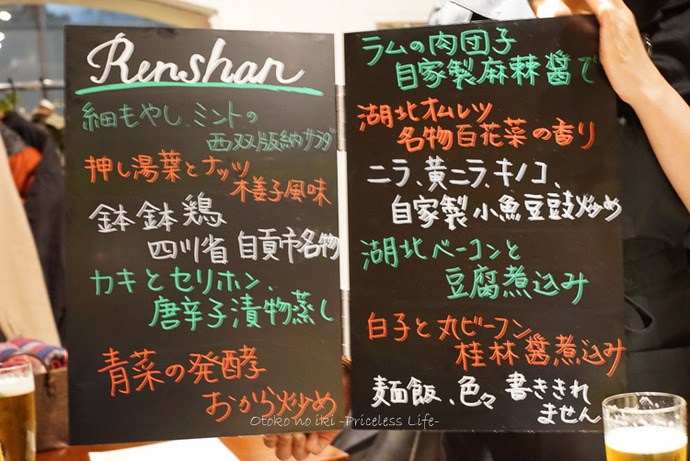 Renshan
細もやし、ミントの
西双版納サラダ
押し湯葉とナッツ
木姜子風味
鉢鉢鶏、
四川省 自貢市名物
カキとセリホン、
唐辛子漬物蒸し
青菜の発酵
おから炒め
ラムの肉団子
自家製麻辣醤で
湖北オムレツ
名物百花菜の香り
ニラ、黄ニラ、キノコ、
自家製小魚豆豉炒め
湖北ベーコンと
豆腐煮込み
白子と丸ビーフン、
桂林醤煮込み
麺飯、色々 書ききれ
ません
Otoko no iki -Priceless Life-